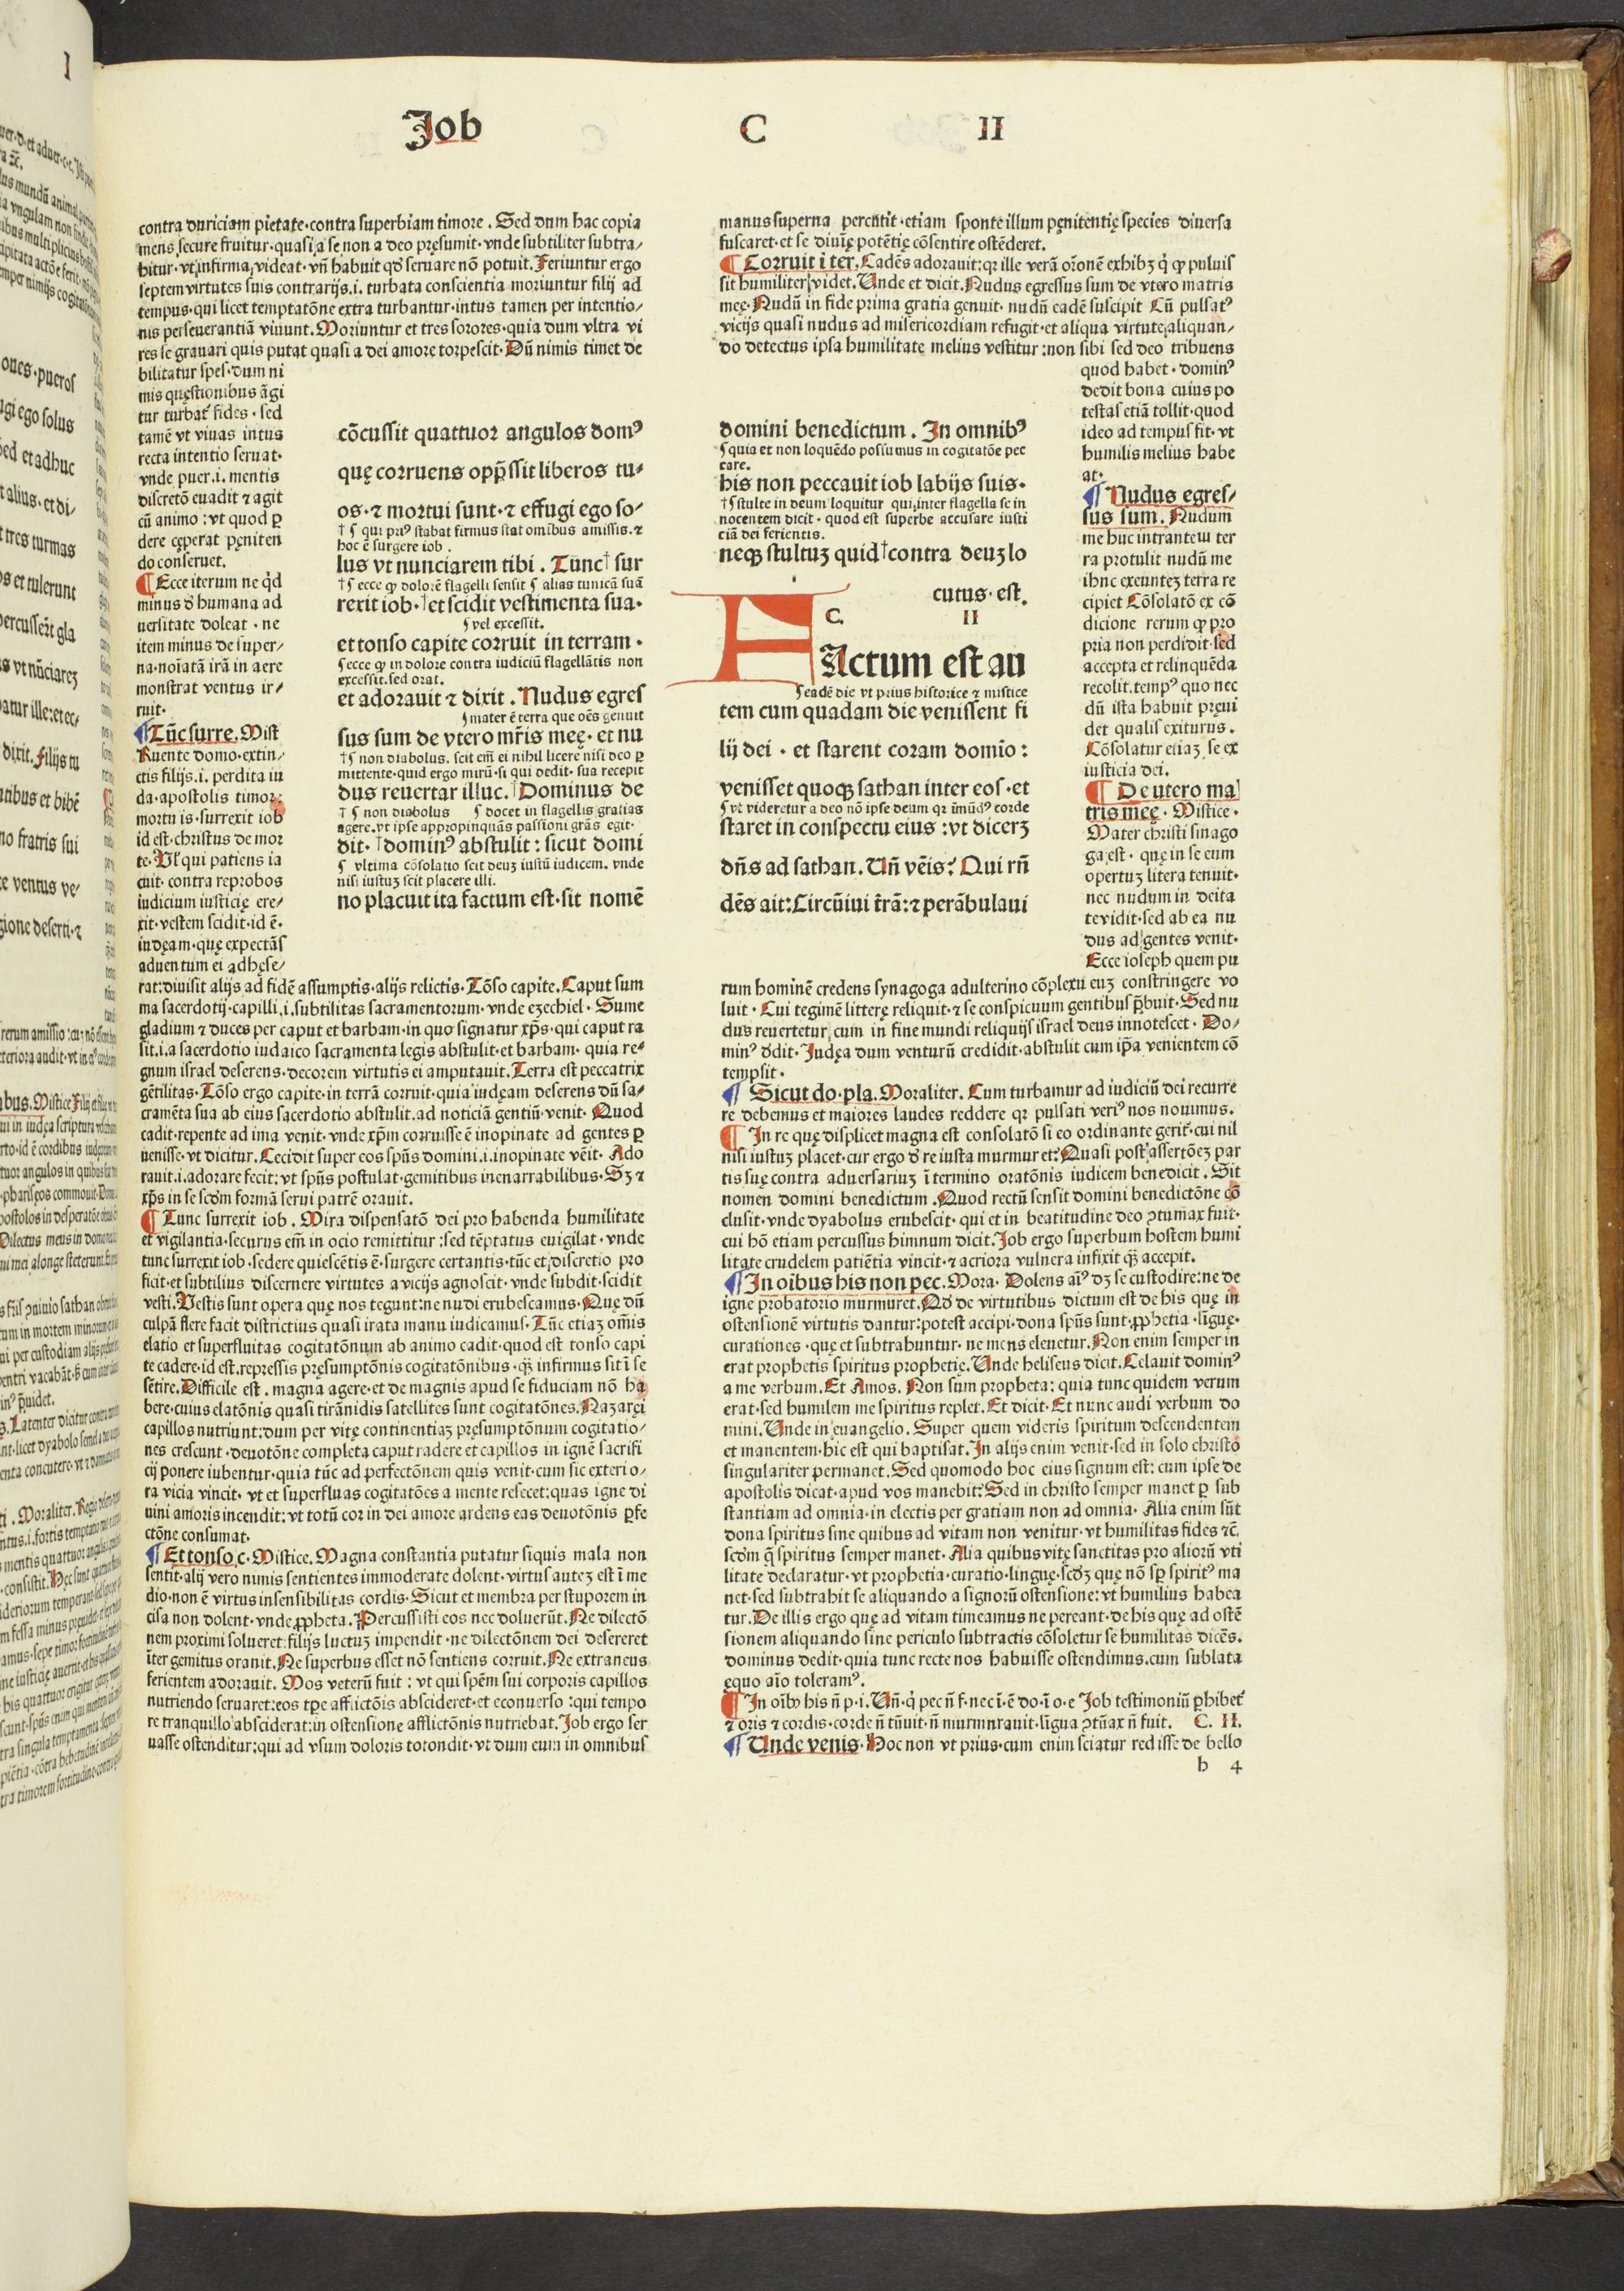 Job C II
contra duriciam pietate·contra superbiam timore. Sed dum hac copia
mens secure fruitur·quasi a se non a deo pręsumit·vnde subtiliter subtra/
hitur·vt infirma videat·vñ habuit qđ seruare nō potuit. Feriuntur ergo
septem virtutes suis contrarijs.i. turbata conscientia moriuntur filij ad
tempus·qui licet temptatōne extra turbantur·intus tamen per intentio/
nis perseuerantiā viuunt. Moriuntur et tres sorores·quia dum vltra vi
res se grauari quis putat quasi a dei amore torpescit·Dū nimis timet de
bilitatur spes·dum ni
mis quęstionibus āgi
tur turbat᷑ fides·sed
tamē vt viuas intus
recta intentio seruat·
vnde puer.i. mentis
discretō euadit ⁊ agit
cū animo : vt quod ꝑ
dere cęperat pęniten
do conseruet.
¶ Ecce iterum ne qd
minus đ humana ad
uersitate doleat· ne
item minus de super/
na·noīatā irā in aere
monstrat ventus ir/
ruit.
¶ Tūc surre. Mist
Ruente domo·extin/
ctis filijs.i. perdita iu
da·apostolis timor:
mortuis·surrexit iob
id est·christus de mor
te·Vl' qui patiens ia
cuit· contra reprobos
iudicium iusticię ere/
xit·vestem scidit·id ē·
iudęam·quę expectās
aduentum ei adhęse/
rat:diuisit alijs ad fidē assumptis·alijs relictis. Tōso capite. Caput sum
ma sacerdotij·capilli.i.subtilitas sacramentorum·vnde ezechiel· Sume
gladium ⁊ duces per caput et barbam·in quo signatur xp̄s·qui caput ra
sit.i.a sacerdotio iudaico sacramenta legis abstulit·et barbam· quia re/
gnum israel deserens·decorem virtutis ei amputauit. Terra est peccatrix
gētilitas. Tōso ergo capite·in terrā corruit·quia iudęam deserens dū sa/
cramēta sua ab eius sacerdotio abstulit·ad noticiā gentiū·venit· Quod
cadit·repente ad ima venit·vnde xp̄m corruisse ē inopinate ad gentes ꝑ
uenisse·vt dicitur. Cecidit super eos spūs domini.i.inopinate vēit· Ado
rauit.i.adorare fecit: vt spūs postulat·gemitibus inenarrabilibus· Sꝫ ⁊
xp̄s in se scđm formā serui patrē orauit.
¶ Tunc surrexit iob. Mira dispensatō dei pro habenda humilitate
et vigilantia·securus em̄ in ocio remittitur :sed tēptatus euigilat· vnde
tunc surrexit iob·sedere quiescētis ē·surgere certantis·tūc et discretio pro
ficit·et subtilius discernere virtutes a vicijs agnoscit·vnde subdit·scidit
vesti. Vestis sunt opera quę nos tegunt:ne nudi erubescamus·Quę dū
culpā flere facit districtius quasi irata manu iudicamus· Tūc etiaꝫ om̄is
elatio et superfluitas cogitatōnum ab animo cadit·quod est tonso capi
te cadere·id est·repressis pręsumptōnis cogitatōnibus·qꝫ infirmus sit ī se
sētire. Difficile est· magna agere·et de magnis apud se fiduciam nō ha
bere·cuius elatōnis quasi tirānidis satellites sunt cogitatōnes. Nazaręi
capillos nutriunt:dum per vitę continentiaꝫ pręsumptōnum cogitatio/
nes crescunt·deuotōne completa caput radere et capillos in ignē sacrifi
cij ponere iubentur·quia tūc ad perfectōnem quis venit·cum sic exterio/
ra vicia vincit· vt et superfluas cogitatōes a mente resecet:quas igne di
uini amoris incendit: vt totū cor in dei amore ardens eas deuotōnis ꝑfe
ctōne consumat.
¶ Et tonso c. Mistice. Magna constantia putatur siquis mala non
sentit·alij vero nimis sentientes immoderate dolent·virtus auteꝫ est ī me
dio·non ē virtus insensibilitas cordis· Sicut et membra per stuporem in
cisa non dolent·vnde ꝓpheta. Percussisti eos nec doluerūt. Ne dilectō
nem proximi solueret:filijs luctuꝫ impendit·ne dilectōnem dei desereret
īter gemitus orauit. Ne superbus esset nō sentiens corruit. Ne extraneus
ferientem adorauit. Mos veterū fuit : vt qui spēm sui corporis capillos
nutriendo seruaret:eos tp̄e afflictōis abscideret·et econuerso :qui tempo
re tranquillo absciderat:in ostensione afflictōnis nutriebat. Job ergo ser
uasse ostenditur:qui ad vsum doloris totondit·vt dum eum in omnibus
cōcussit quattuor angulos domꝰ
quę corruens opp̄ssit liberos tu/
os·⁊ mortui sunt·⁊ effugi ego so/
† ¶ qui priꝰ stabat firmus stat omībus amissis.⁊
hoc ē surgere iob.
lus vt nunciarem tibi. Tunc † sur
† ¶ ecce ꝙ dolorē flagelli sensit ¶ alias tunicā suā
rexit iob· † et scidit vestimenta sua·
¶ vel excessit.
et tonso capite corruit in terram·
¶ ecce ꝙ in dolore contra iudiciū flagellātis non
excessit·sed orat.
et adorauit ⁊ dixit. Nudus egres
¶ mater ē terra que oēs genuit
sus sum de vtero mr̄is meę· et nu
† ¶ non diabolus. scit em̄ ei nihil licere nisi deo ꝑ
mittente·quid ergo mirū·si qui dedit· sua recepit
dus reuertar illuc. † Dominus de
† ¶ non diabolus ¶ docet in flagellis gratias
agere·vt ipse appropinquās passioni grās egit·
dit· † dominꝰ abstulit : sicut domi
¶ vltima cōsolatio scit deuꝫ iustū iudicem. vnde
nisi iustuꝫ scit placere illi.
no placuit ita factum est·sit nomē
manus superna percutit·etiam sponte illum pęnitentię species diuersa
fuscaret·et se diuīę potētię cōsentire ostēderet.
¶ Corruit ī ter. Cadēs adorauit:qr ille verā or̄onē exhibꝫ q̇ ꝙ puluis
sit humiliter videt. Unde et dicit. Nudus egressus sum de vtero matris
meę· Nudū in fide prima gratia genuit· nudū eadē suscipit Cū pulsatꝰ
vicijs quasi nudus ad misericordiam refugit·et aliqua virtute aliquan/
do detectus ipsa humilitate melius vestitur :non sibi sed deo tribuens
quod habet· dominꝰ
dedit bona cuius po
testas etiā tollit·quod
ideo ad tempus fit·vt
humilis melius habe
at·
¶ Nudus egres/
sus sum. Nudum
me huc intrantem ter
ra protulit nudū me
ihnc exeunteꝫ terra re
cipiet Cōsolatō ex cō
dicione rerum ꝙ pro
pria non perdidit·sed
accepta et relinquēda
recolit·tempꝰ quo nec
dū ista habuit pręui
det qualis exiturus·
Cōsolatur etiaꝫ se ex
iusticia dei.
¶ De utero ma
tris meę· Mistice·
Mater christi sinago
ga est· quę in se eum
opertuꝫ litera tenuit·
nec nudum in deita
te vidit·sed ab ea nu
dus ad gentes venit·
Ecce ioseph quem pu
rum hominē credens synagoga adulterino cōplexu euꝫ constringere vo
luit· Cui teginē litterę reliquit·⁊ se conspicuum gentibus p̄buit·Sed nu
dus reuertetur, cum in fine mundi reliquijs israel deus innotescet· Do/
minꝰ đdit· Judęa dum venturū credidit·abstulit cum ip̄a venientem cō
tempsit·
¶ Sicut do·pla. Moraliter. Cum turbamur ad iudiciū dei recurre
re debemus et maiores laudes reddere qr pulsati veriꝰ nos nouimus.
¶ In re quę displicet magna est consolatō si eo ordinante gerit᷑·cui nil
nisi iustuꝫ placet·cur ergo đ re iusta murmuret: Quasi post assertōeꝫ par
tis suę contra aduersariuꝫ ī termino oratōnis iudicem benedicit. Sit
nomen domini benedictum. Quod rectū sensit domini benedictōne cō
clusit·vnde dyabolus erubescit· qui et in beatitudine deo ꝯtumax fuit·
cui hō etiam percussus himnum dicit. Job ergo superbum hostem humi
litate crudelem patiētia vincit·⁊ acriora vulnera infixit qꝫ accepit.
¶ In oībus his non pec. Mora· Dolens aīꝰ dꝫ se custodire:ne de
igne probatorio murmuret. Qđ de virtutibus dictum est de his quę in
ostensionē virtutis dantur:potest accipi·dona spūs sunt·ꝓphetia·līguę·
curationes·quę et subtrahuntur· ne mens eleuetur. Non enim semper in
erat prophetis spiritus prophetię. Unde heliseus dicit. Celauit dominꝰ
a me verbum. Et Amos. Non sum propheta: quia tunc quidem verum
erat·sed humilem me spiritus replet. Et dicit·Et nunc audi verbum do
mini. Unde in euangelio. Super quem videris spiritum descendentem
et manentem·hic est qui baptisat. In alijs enim venit·sed in solo christo
singulariter permanet. Sed quomodo hoc eius signum est: cum ipse de
apostolis dicat·apud vos manebit: Sed in christo semper manet ꝑ sub
stantiam ad omnia·in electis per gratiam non ad omnia· Alia enim sūt
dona spiritus sine quibus ad vitam non venitur·vt humilitas fides ⁊c̄.
scđm q̄ spiritus semper manet· Alia quibus vitę sanctitas pro aliorū vti
litate declaratur·vt prophetia·curatio·linguę·scđꝫ quę nō sp̄ spiritꝰ ma
net·sed subtrahit se aliquando a signorū ostensione: vt humilius habea
tur. De illis ergo quę ad vitam timeamus ne pereant·de his quę ad ostē
sionem aliquando sine periculo subtractis cōsoletur se humilitas dicēs.
dominus dedit·quia tunc recte nos habuisse ostendimus·cum sublata
ęquo aīo toleramꝰ.
¶ In oībꝰ his ñ p·i. Uñ·q̇ pec ñ f·nec ī·ē do·ī o·e Job testimoniū ꝑhibet᷑
⁊ oris ⁊ cordis·corde ñ tūuit·ñ murmurauit·līgua ꝯtūax ñ fuit. C. II.
¶ Unde venis. Hoc non vt prius·cum enim sciatur redisse de bello
domini benedictum. In omnibꝰ
¶ quia et non loquēdo possumus in cogitatōe pec
care.
his non peccauit iob labijs suis·
† ¶ stulte in deum loquitur qui inter flagella se in
nocentem dicit· quod est superbe accusare iusti
ciā dei ferientis.
neqꝫ stultuꝫ quid † contra deuꝫ lo
cutus·est.
C. II
FActum est au
¶ eadē die vt prius historice ⁊ mistice
tem cum quadam die venissent fi
lij dei· et starent coram domīo :
venisset quoqꝫ sathan inter eos·et
¶ vt videretur a deo nō ipse deum qr īmūdꝰ corde
staret in conspectu eius :vt diceꝛꝫ
dn̄s ad sathan. Uñ vēis: Qui rn̄
dēs ait:Circūiui tr̄ā:⁊ perābulaui
b 4